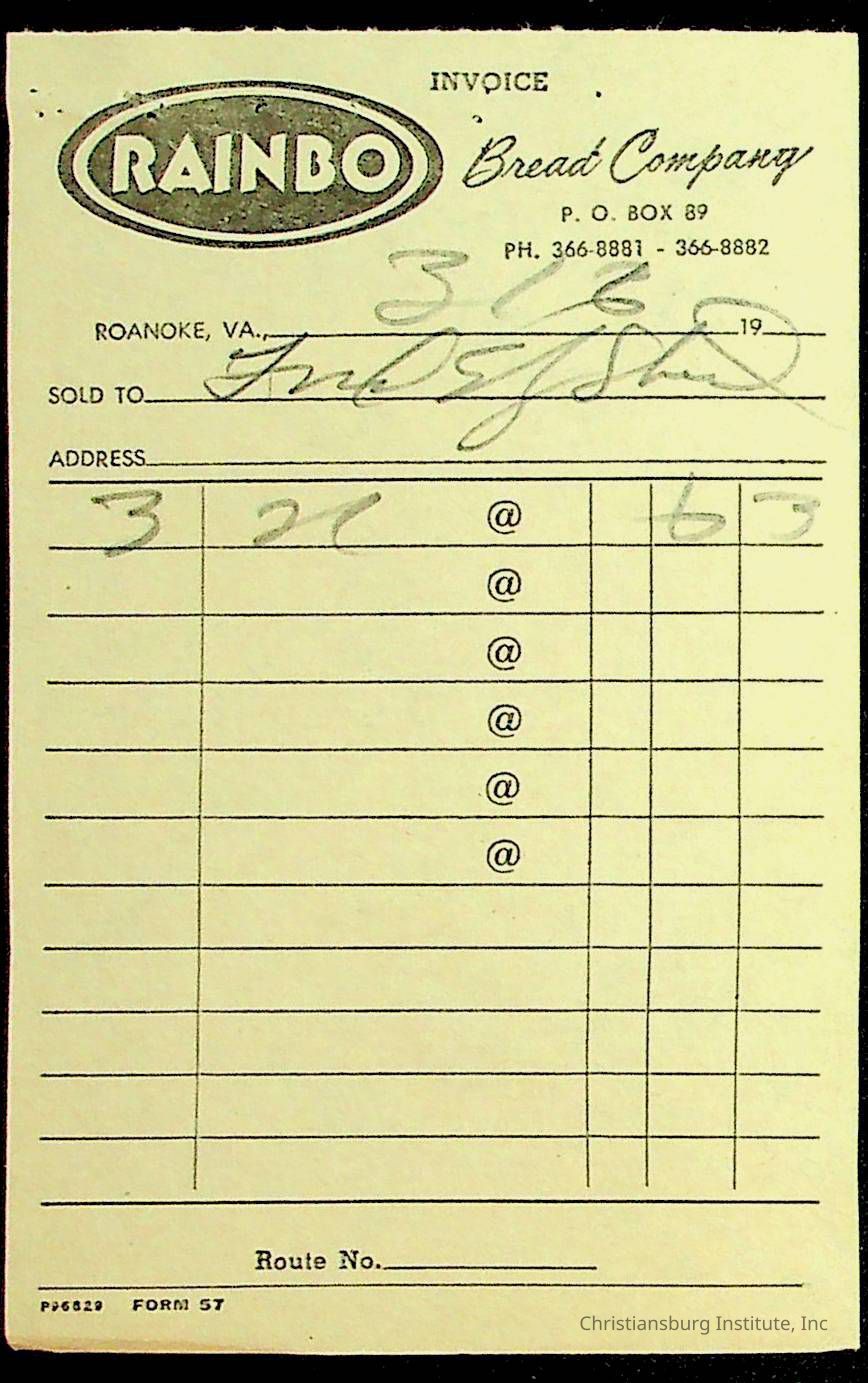 INVOICE
RAINBO
Bread Company
P. O. BOX 89
PH. 366-8881 - 366-8882
ROANOKE, VA., 3 1 19
SOLD TO
ADDRESS
3 @ 63
@
@
@
@
@
Route No.
P96829 FORM 57
Christiansburg Institute, Inc